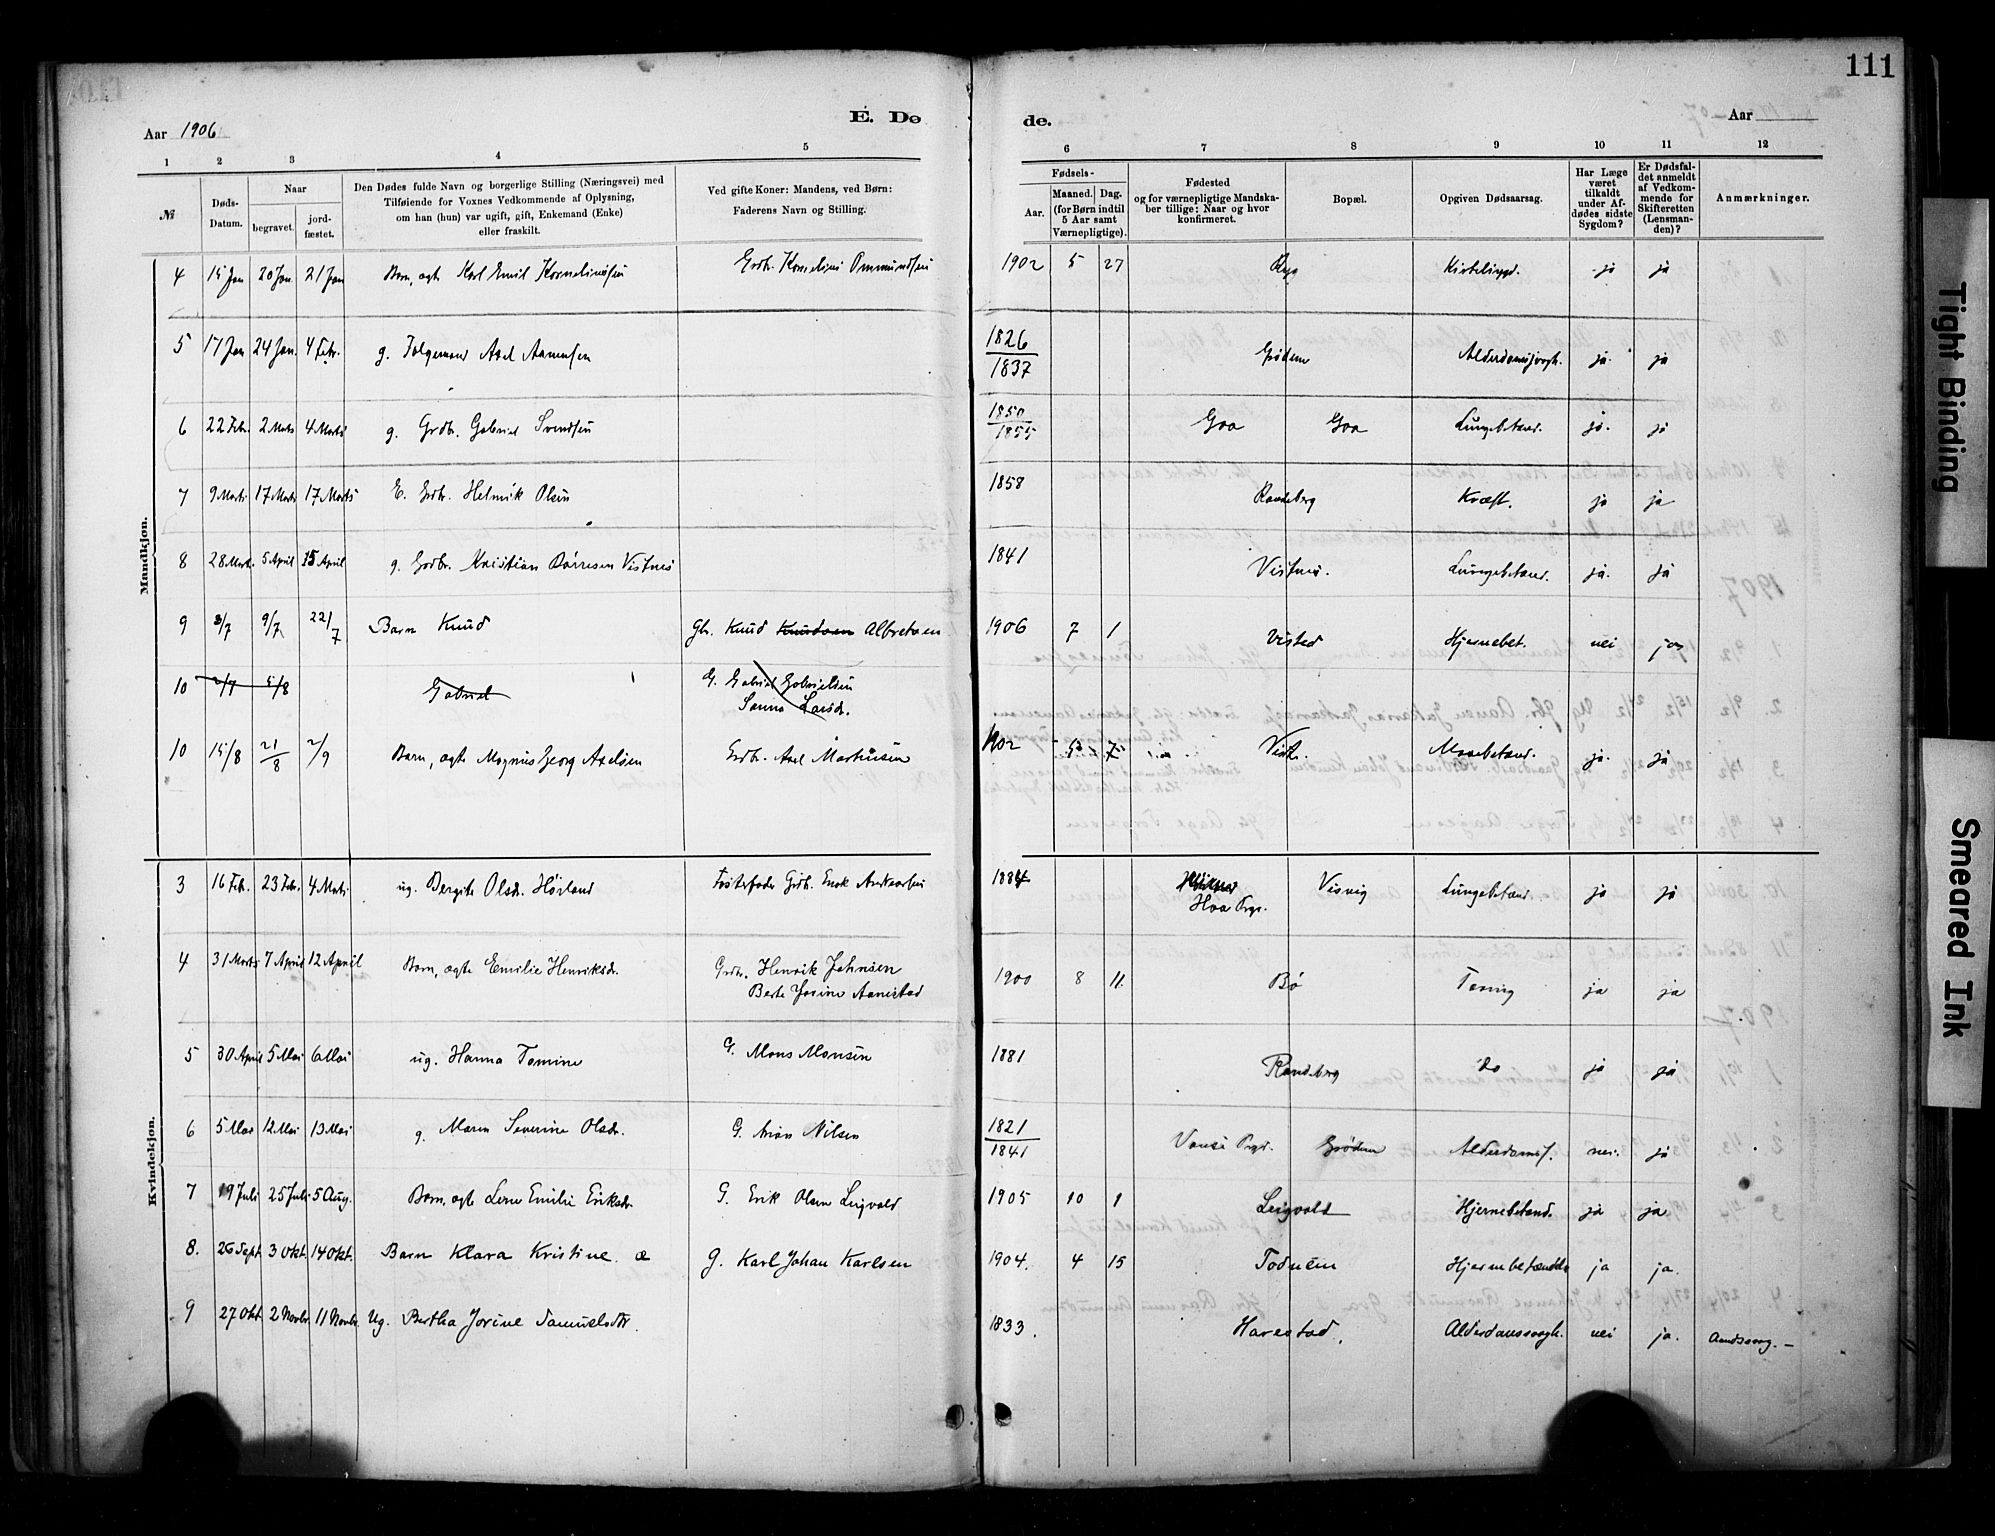 111
Aar 1906
E. Dø
de.
Aar
1 2 3 4 5 6 7 8 9 10 11 12
№
Døds-Datum.
Naar
begravet.
jord-fæstet.
Den Dødes fulde Navn og borgerlige Stilling (Næringsvei) med
Tilføiende for Voxnes Vedkommende af Oplysning,
om han (hun) var ugift, gift, Enkemand (Enke)
eller fraskilt.
Ved gifte Koner: Mandens, ved Børn:
Faderens Navn og Stilling.
Fødsels-
Aar.
Maaned. Dag.
(for Børn indtil
5 Aar samt
Værnepligtige).
Fødested
og for værnepligtige Mandska-
ber tillige: Naar og hvor
konfirmeret.
Bopæl.
Opgiven Dødsaarsag.
Har Læge
været
tilkaldt
under Af-
dødes sidste
Sygdom?
Er Dødsfal-
det anmeldt
af Vedkom-
mende for
Skifteretten
(Lensman-
den)?
Anmærkninger.
Mandkjøn.
4 15 Jan 20 Jan. 21 Jan Barn, ægte Karl Emil Korneliussen Grdb. Kornelius Ommundsen 1902 5 27 Ryg ja ja
5 17 Jan 24 Jan. 4 Febr. g. Axel 1826/1837 Grødem ja. ja
6 22 Febr. 2 Marts 4 Marts g. Grdb. Gabriel Svendsen 1850/1855 Goa Goa Lungebetænd. ja. ja
7 9 Marts 17 Marts 17 Marts E. Grdb. Helmik Olsen 1858 Randeberg Kræft. ja ja
8 28 Mart. 5 April 15 April g. Grdbr. Kristian Børresen Vistnes 1841 Vistnes. Lungebetænd. ja. ja
9 3/7 9/7 22/7 Barn Knud Gbr. Knud Knudsen Albretsen 1906 7 1 Visted Hjernebet. nei ja
10 2/7 5/8 Gabriel G. Gabriel Gabrielsen
Sanna Larsd.
10 15/8 21/8 2/9 Barn, ægte Magnus Georg Axelsen Grdbr. Axel Martinsen 1902 5 7 Viste. Mavebetænd. ja. ja
Kvindekjøn.
3 16 Feb. 23 Feb. 4 Marts ug. Bergite Olsdr. Hørland Fosterfader Grdb. Enok 1884 Hoa Prgs. Visvig Lungebetænd. ja ja
4 31 Marts 7 April 12 April Barn, ægte Emilie Henriksdr. Grdbr. Henrik Johnsen
Berte Josine Aanestad 1900 8 11. Bø Tæring ja ja
5 30 April 5 Mai 6 Mai ug. Hanna Tomine G. Mons Monsen 1881 Randeberg do ja ja
6 5 Mai 12 Mai 13 Mai g. Maren Severine Olsdr. G. Nilsen 1821/1841 Vanse Prgd. Grødem Alderdomss. nei. ja
7 19 Juli 25 Juli 5 Aug. Barn, ægte Lene Emilie Eriksdr. G. Erik Olsen Leigvold 1905 10 1 Leigvold Hjernebetænd. ja ja
8. 26 Sept. 3 Okt. 14 Okt. Barn Klara Kristine. æ G. Karl Johan Karlsen 1904. 4 15 Todnem Hjernebetændelse ja ja.
9 27 Okt. 2 Novbr. 11 Novbr. Ug. Bertha Jorine Samuelsdtr. 1833. Harestad, Alderdomssvagh. nei ja. Aandssvag.—
Tight Binding
Smeared Ink